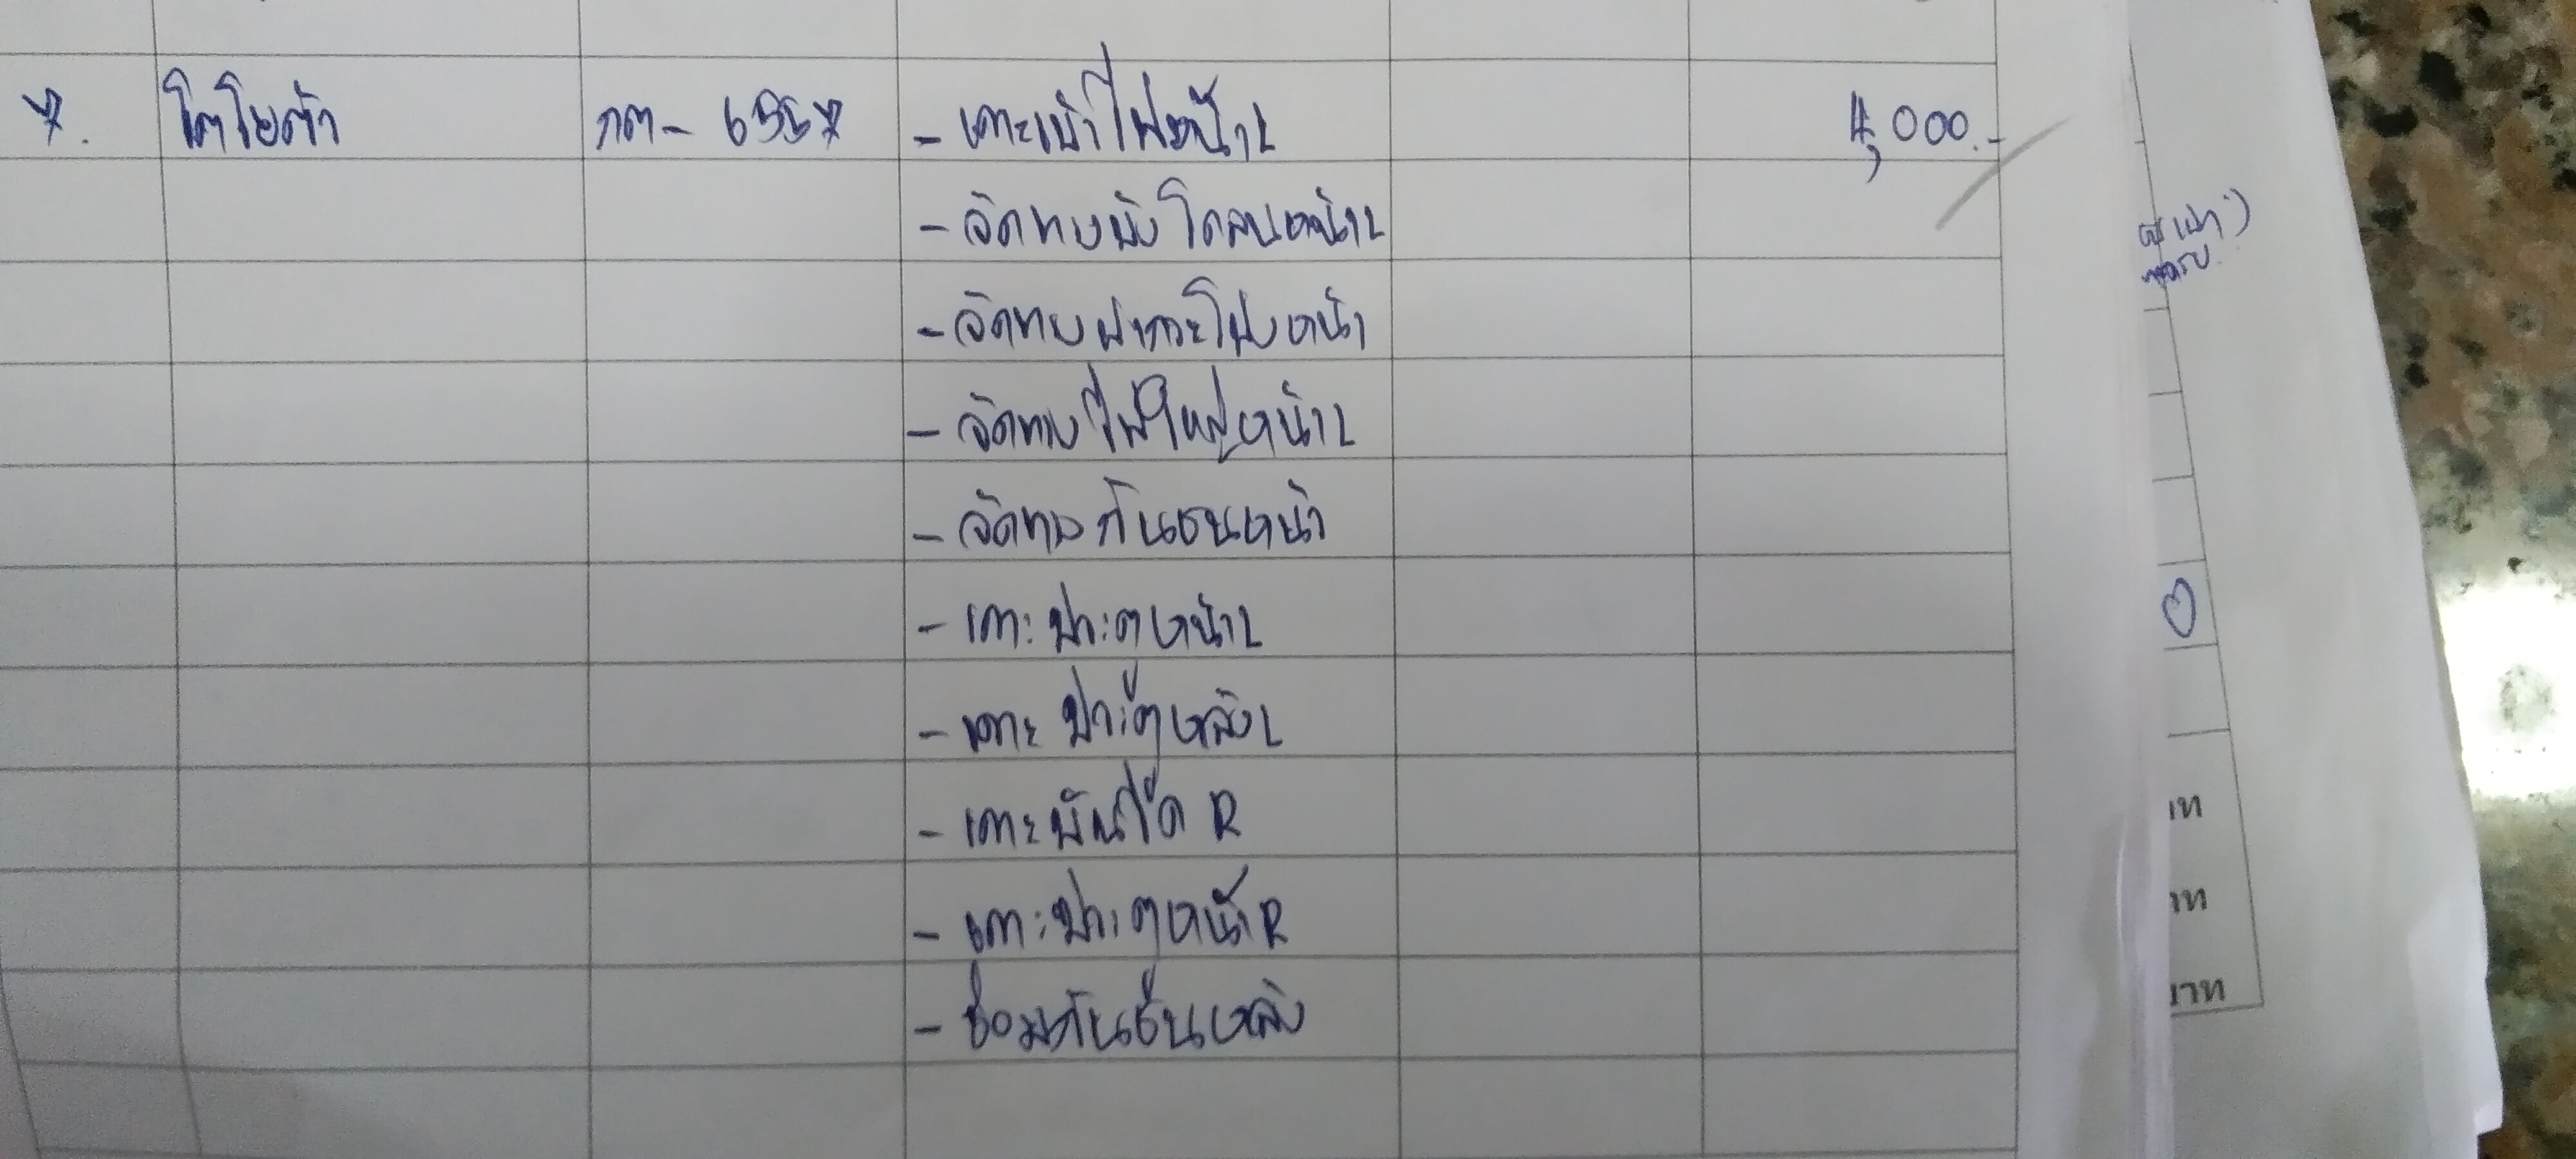 7. โตโยต้า กต- 6557 - เคาะเบ้าไฟหน้าL 4,000.-
- จัดทรงบังโคลนหน้าL
- จัดทรงฝากระโปรงหน้า
- จัดทรงไฟใหญ่หน้าL
- จัดทรงกันชนหน้า
- เคาะประตูหน้าL
- เคาะประตูหลังL
- เคาะบันได R
- เคาะประตูหน้าR
- ซ่อมกันชนหลัง
าท
าท
บาท